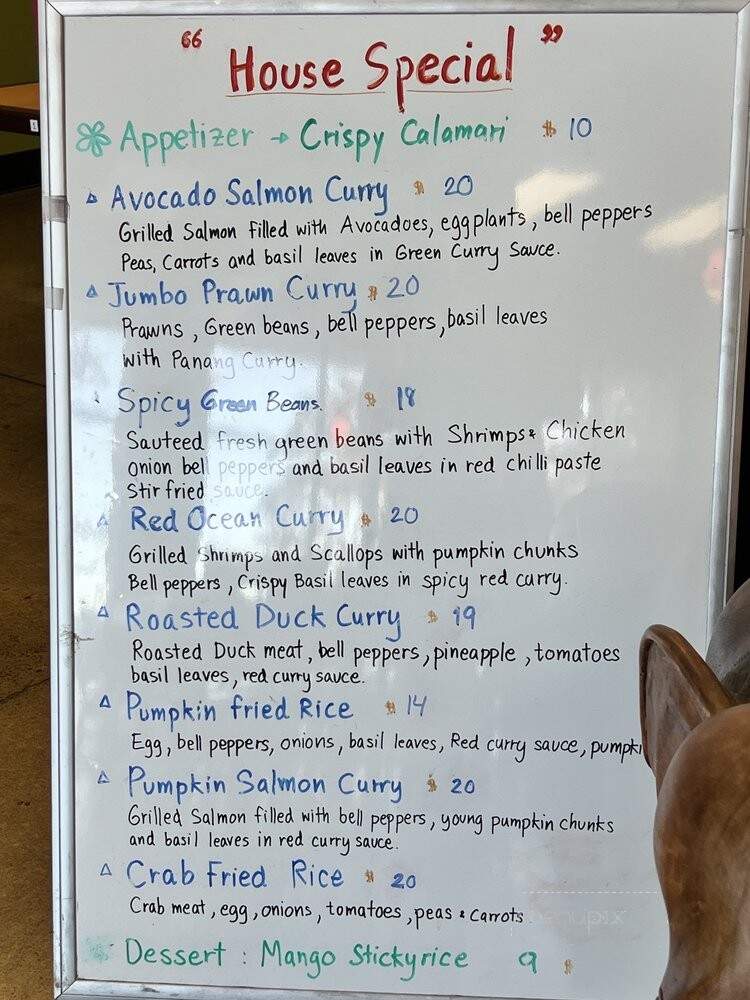 " House Special "
Appetizer → Crispy Calamari $ 10
Avocado Salmon Curry $ 20
Grilled Salmon filled with Avocadoes, eggplants, bell peppers
Peas, Carrots and basil leaves in Green Curry Sauce.
Jumbo Prawn Curry $ 20
Prawns, Green beans, bell peppers, basil leaves
with Panang Curry.
Spicy Green Beans. $ 18
Sauteed fresh green beans with Shrimps & Chicken
onion bell peppers and basil leaves in red chilli paste
Stir fried sauce.
Red Ocean Curry $ 20
Grilled Shrimps and Scallops with pumpkin chunks
Bell peppers, Crispy Basil leaves in spicy red curry.
Roasted Duck Curry $ 19
Roasted Duck meat, bell peppers, pineapple, tomatoes
basil leaves, red curry sauce.
Pumpkin fried Rice $ 14
Egg, bell peppers, onions, basil leaves, Red curry sauce, pumpki
Pumpkin Salmon Curry $ 20
Grilled Salmon filled with bell peppers, young pumpkin chunks
and basil leaves in red curry sauce.
Crab Fried Rice $ 20
Crab meat, egg, onions, tomatoes, peas & carrots
Dessert : Mango Stickyrice 9 $